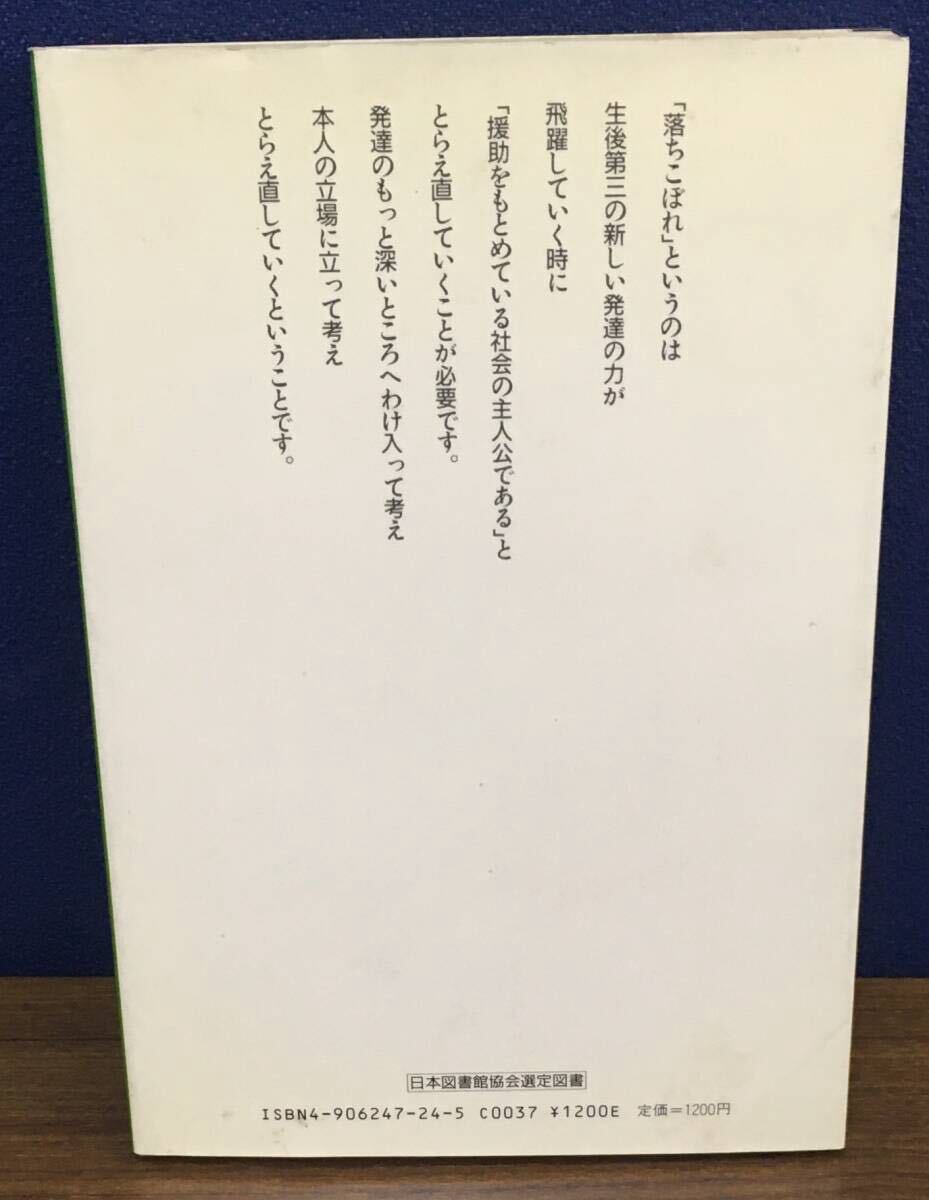 「落ちこぼれ」というのは
生後第三の新しい発達の力が
飛躍していく時に
「援助をもとめている社会の主人公である」と
とらえ直していくことが必要です。
発達のもっと深いところへわけ入って考え
本人の立場に立って考え
とらえ直していくということです。
日本図書館協会選定図書
ISBN4-906247-24-5 C0037 ¥1200E 定価=1200円